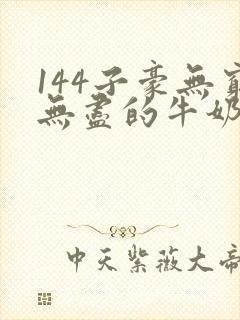 144子豪無窮
無盡的牛奶
中天紫薇大帝